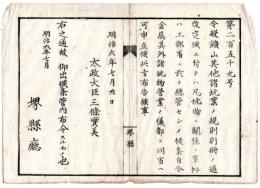 第二百五十九号
今般鑛山其他諸坑業ノ規則別冊ノ通
改定候ニ付テハ凡坑物ニ関係ノ事件
ハ工部省ニ於テ總管セシメ候条自今
金属其外諸坑物營業ノ儀都テ同省ヘ
可申立候此旨布告候事
明治六年七月
太政大臣三條實美
右之通被 仰出候条管内布令スルモノ也
明治六年七月
堺縣廳
堺縣